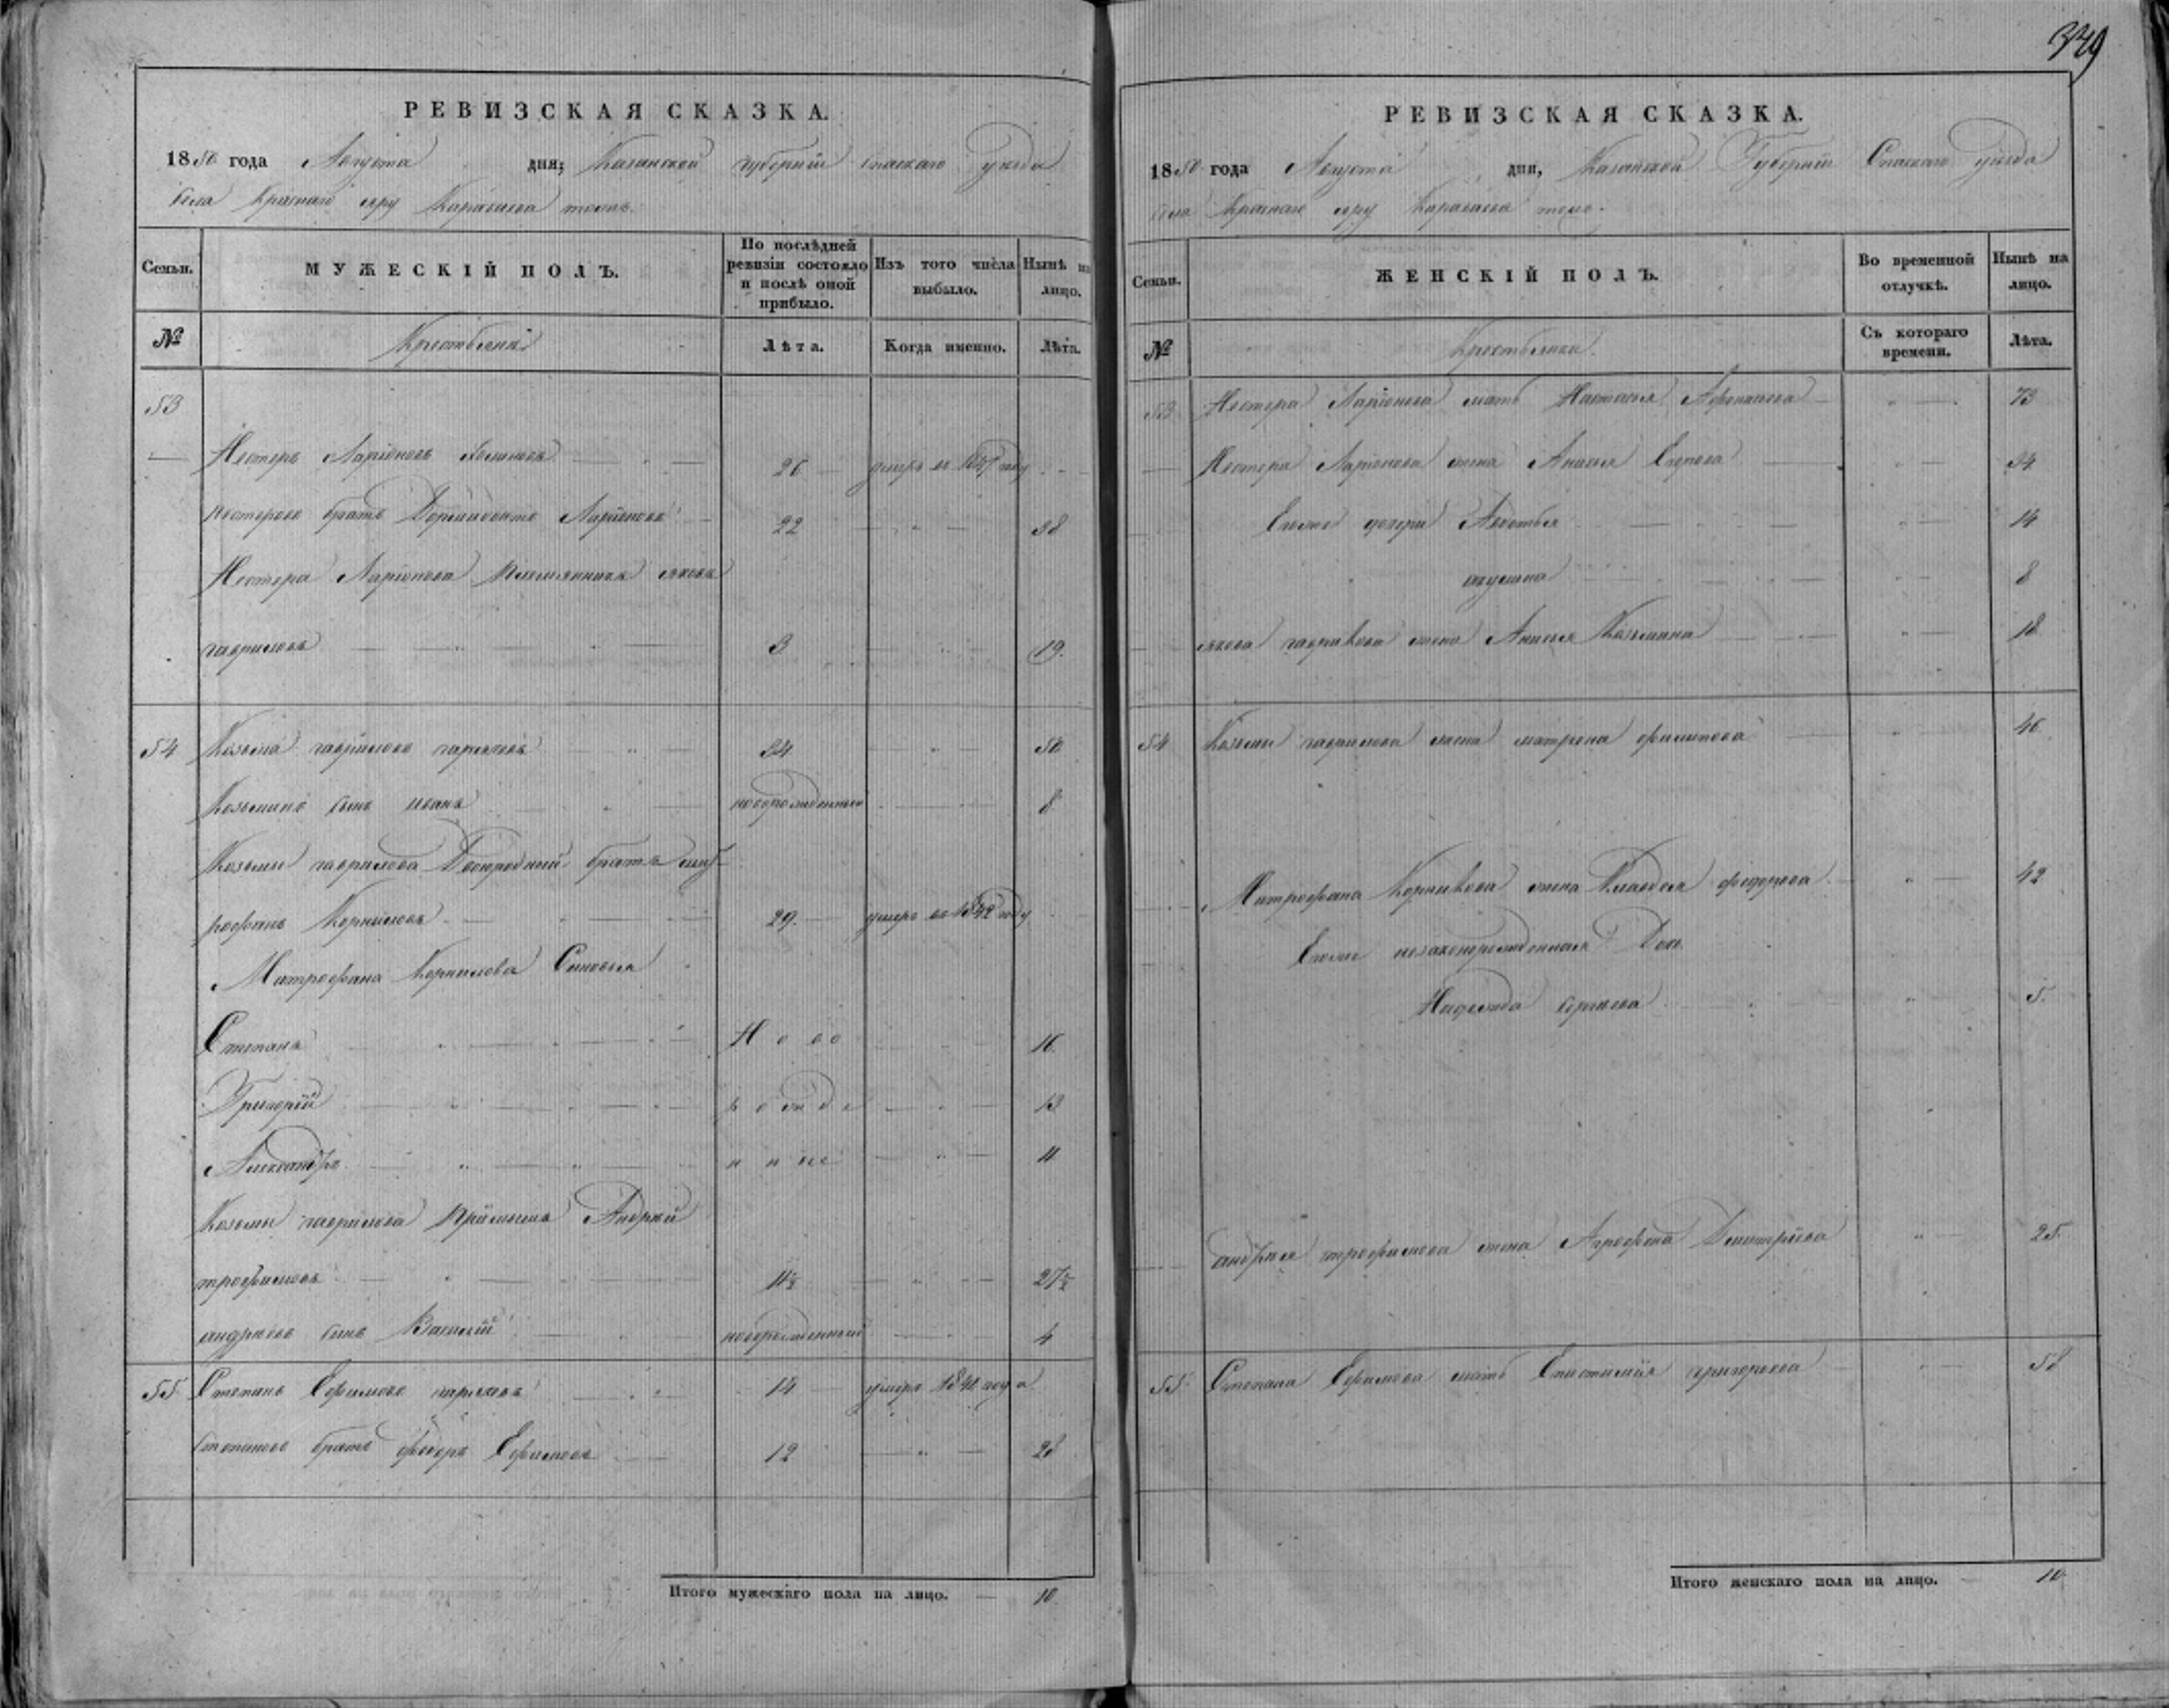 329
РЕВИЗСКАЯ СКАЗКА.
1850 года Августа дня; Казанской губернiи спаскаго уезда
села Краснаго яру Карагаева тожъ.
Семьи.
МУЖЕСКIЙ ПОЛЪ.
По послѣдней ревизiи состояло и послѣ оной прибыло.
Изъ того числа выбыло.
Нынѣ на лицо.
№
Крестьяня
Лѣта.
Когда именно.
Лѣта.
53
Нестеръ Ларiоновъ 26 умеръ въ 1847 году
Нестеровъ братъ Дормидонтъ Ларiоновъ 22 38
Нестера Ларiонова племянникъ яковъ
гавриловъ 3 19.
54 Козьма гавриловъ 34 50
Козьминъ сынъ иванъ новорожденный 8
Козьмы гаврилова Двоюродный братъ мит
рофанъ Корниловъ 29. умеръ въ 1842 году
Митрофана Корнилова Сыновья
Степанъ Ново 16.
Григорiй рожде 13
Александръ нные 11
Козьмы гаврилова прiимышъ Андрей
трофимовъ 11½ 27½
андреевъ сынъ Василiй новорожденный 4
55 Степанъ Ефимовъ 14 умеръ 1841 года
степановъ братъ федоръ Ефимовъ 12 28
Итого мужескаго пола на лицо. — 10.
РЕВИЗСКАЯ СКАЗКА.
1850 года Августа дня, Казанской Губернiи Спаскаго уезда
села Краснаго яру Карагаева тожъ.
Семьи.
ЖЕНСКIЙ ПОЛЪ.
Во временной отлучкѣ.
Нынѣ на лицо.
№
Крестьянки.
Съ котораго времени.
Лѣта.
53 Нестера Ларiонова мать Настасья Афонасьева 73
Нестера Ларiонова жена Анисья Егорова 34
Евоже дочери Авдотья 14
акулина 8
якова гаврилова жена Анисья Козьмина 18
54 Козьмы гаврилова жена матрена филипова 46
Митрофана Корнилова жена Клавдея федорова 42
Евоже незаконорожденная Доч.
Надежда сергиева 5.
андрея трофимова жена Агрофена Дмитрiева 25.
55. Степана Ефимова мать Епистимiя григорьева 58
Итого женскаго пола на лицо. — 10